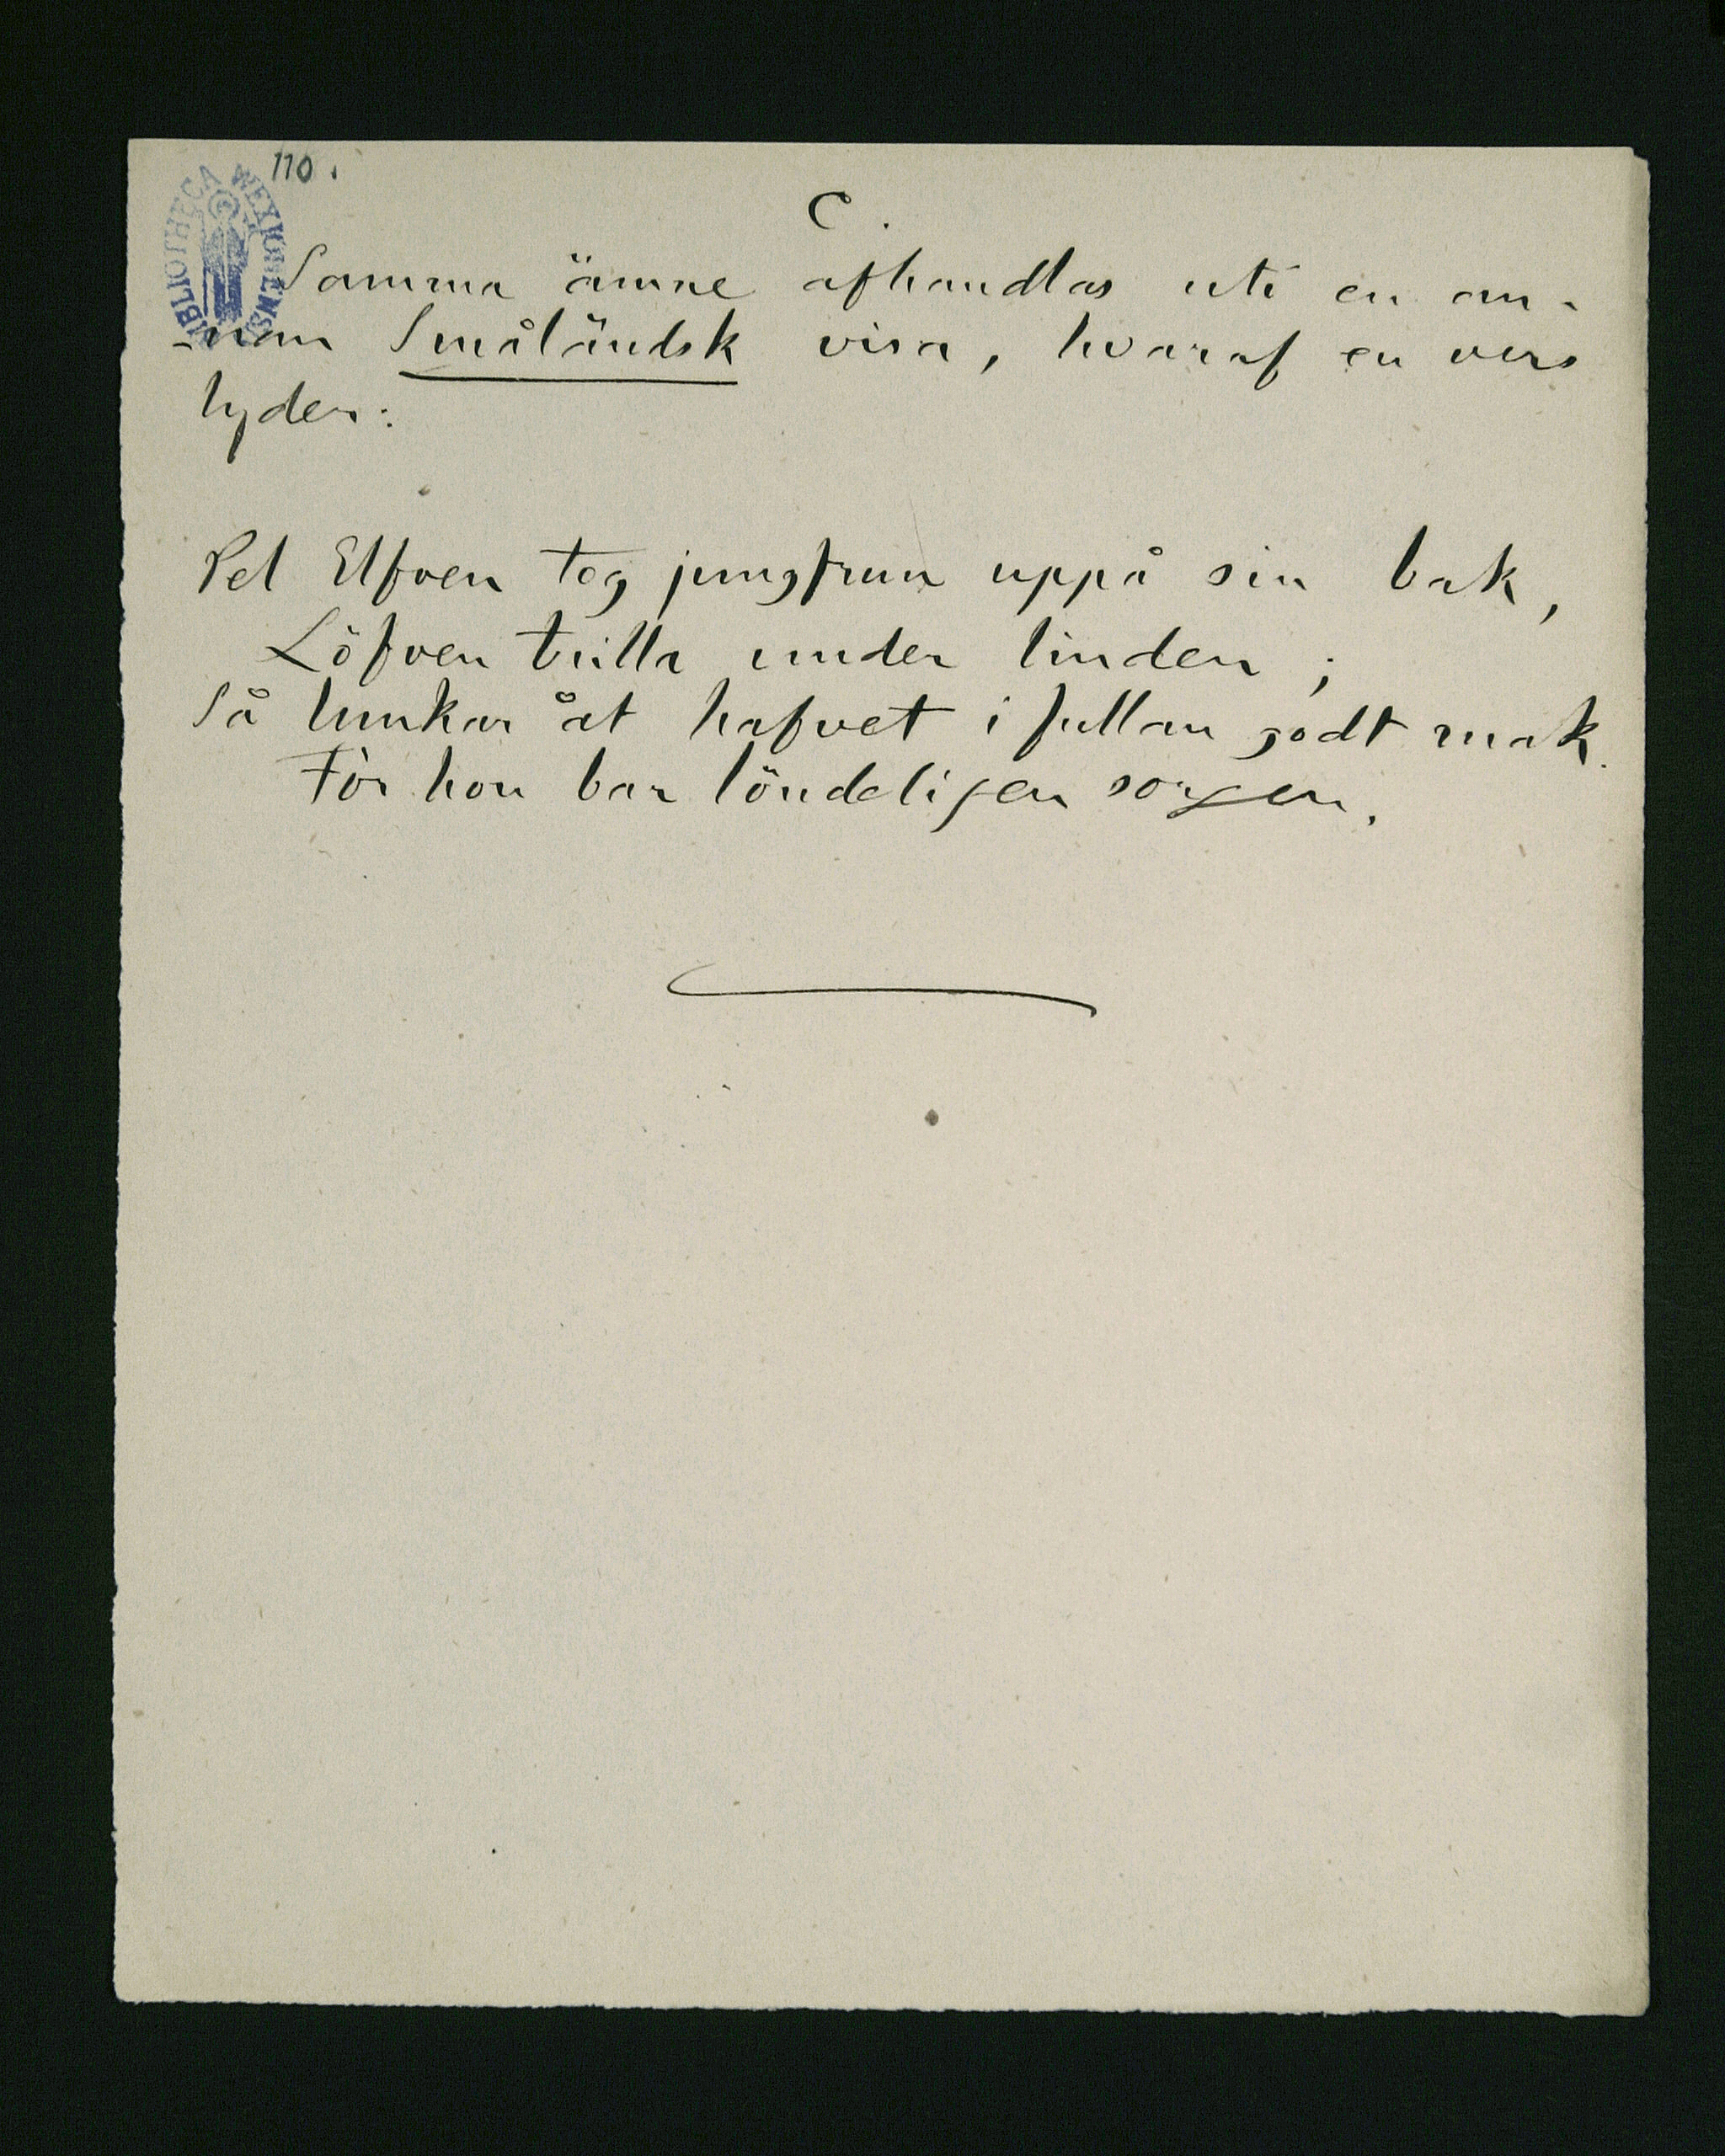 110.
BIBLIOTHECA WEXIONENSIS
C.
Samma ämne afhandlas uti en an-
-nan Småländsk visa, hvaraf en vers
lyder:
Pel Elfven tog jungfrun uppå sin bak,
Löfven trilla under linden;
Så lunkar åt hafvet i fullan godt mak.
För hon bar löndeligen sorgen.